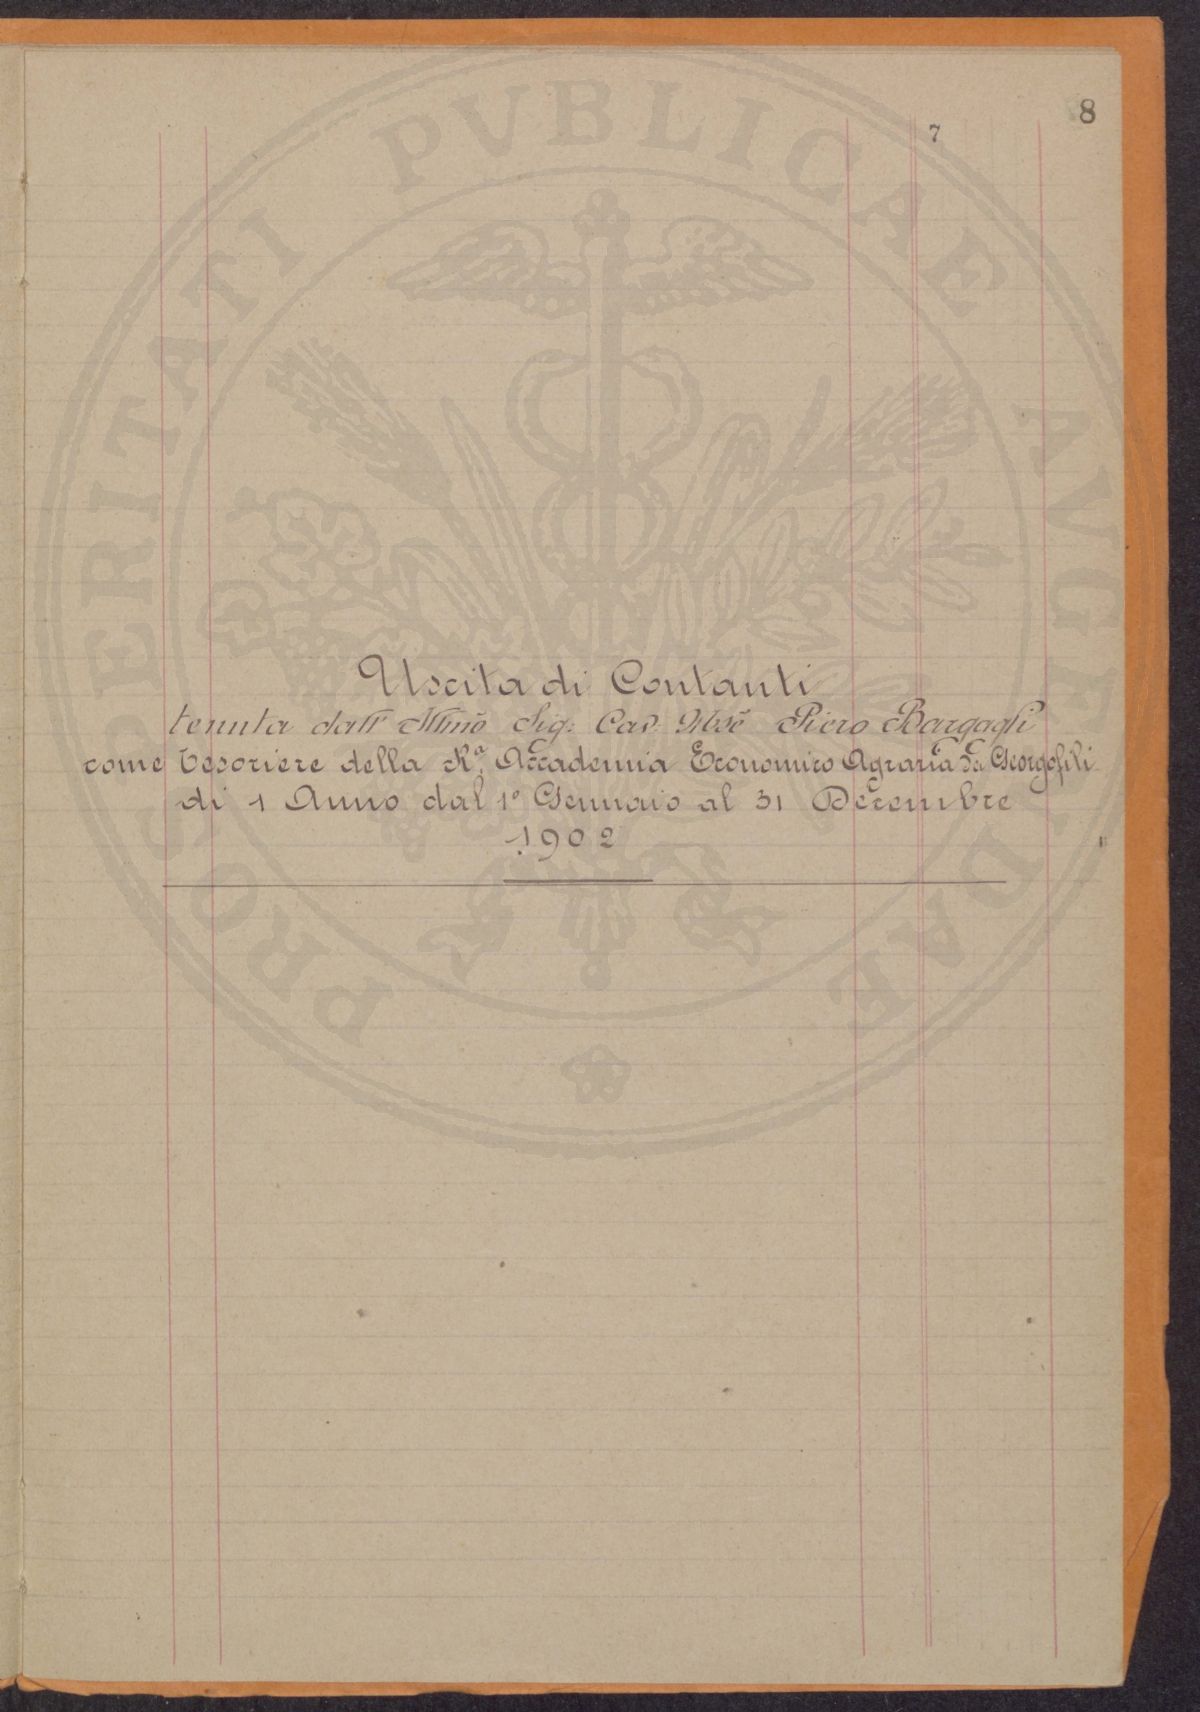 8
7
PROSPERITATI PVBLICAE AVGENDAE
Uscita di Contanti
tenuta dall' Illmõ Sig: Cav. Piero Bargagli
come Tesoriere della Rª. Accademia Economico Agraria dei Georgofili
di 1 Anno dal 1º Gennaio al 31 Decembre
1902